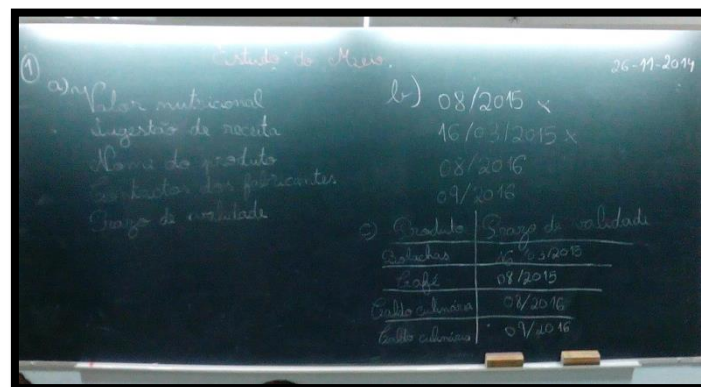 Estudo do Meio.
26-11-2014
1
a)
Valor nutricional
Sugestão de receita
Nome do produto
Contactos dos fabricantes.
Prazo de validade
b) 08/2015 x
16/03/2015 x
08/2016
09/2016
c) Produto Prazo de validade
Bolachas 16/03/2015
Café 08/2015
Caldo culinário 08/2016
Caldo culinário 09/2016